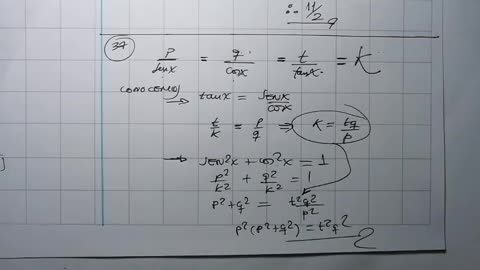 ∴ 11/2
37
P/senx = q/cosx = t/tanx = K
conocemos
→ tanx = senx/cosx
t/k = p/q ⇒ K = tq/p
→ sen²x + cos²x = 1
p²/k² + q²/k² = 1
p²+q² = t²q²/p²
p²(p²+q²) = t²q²